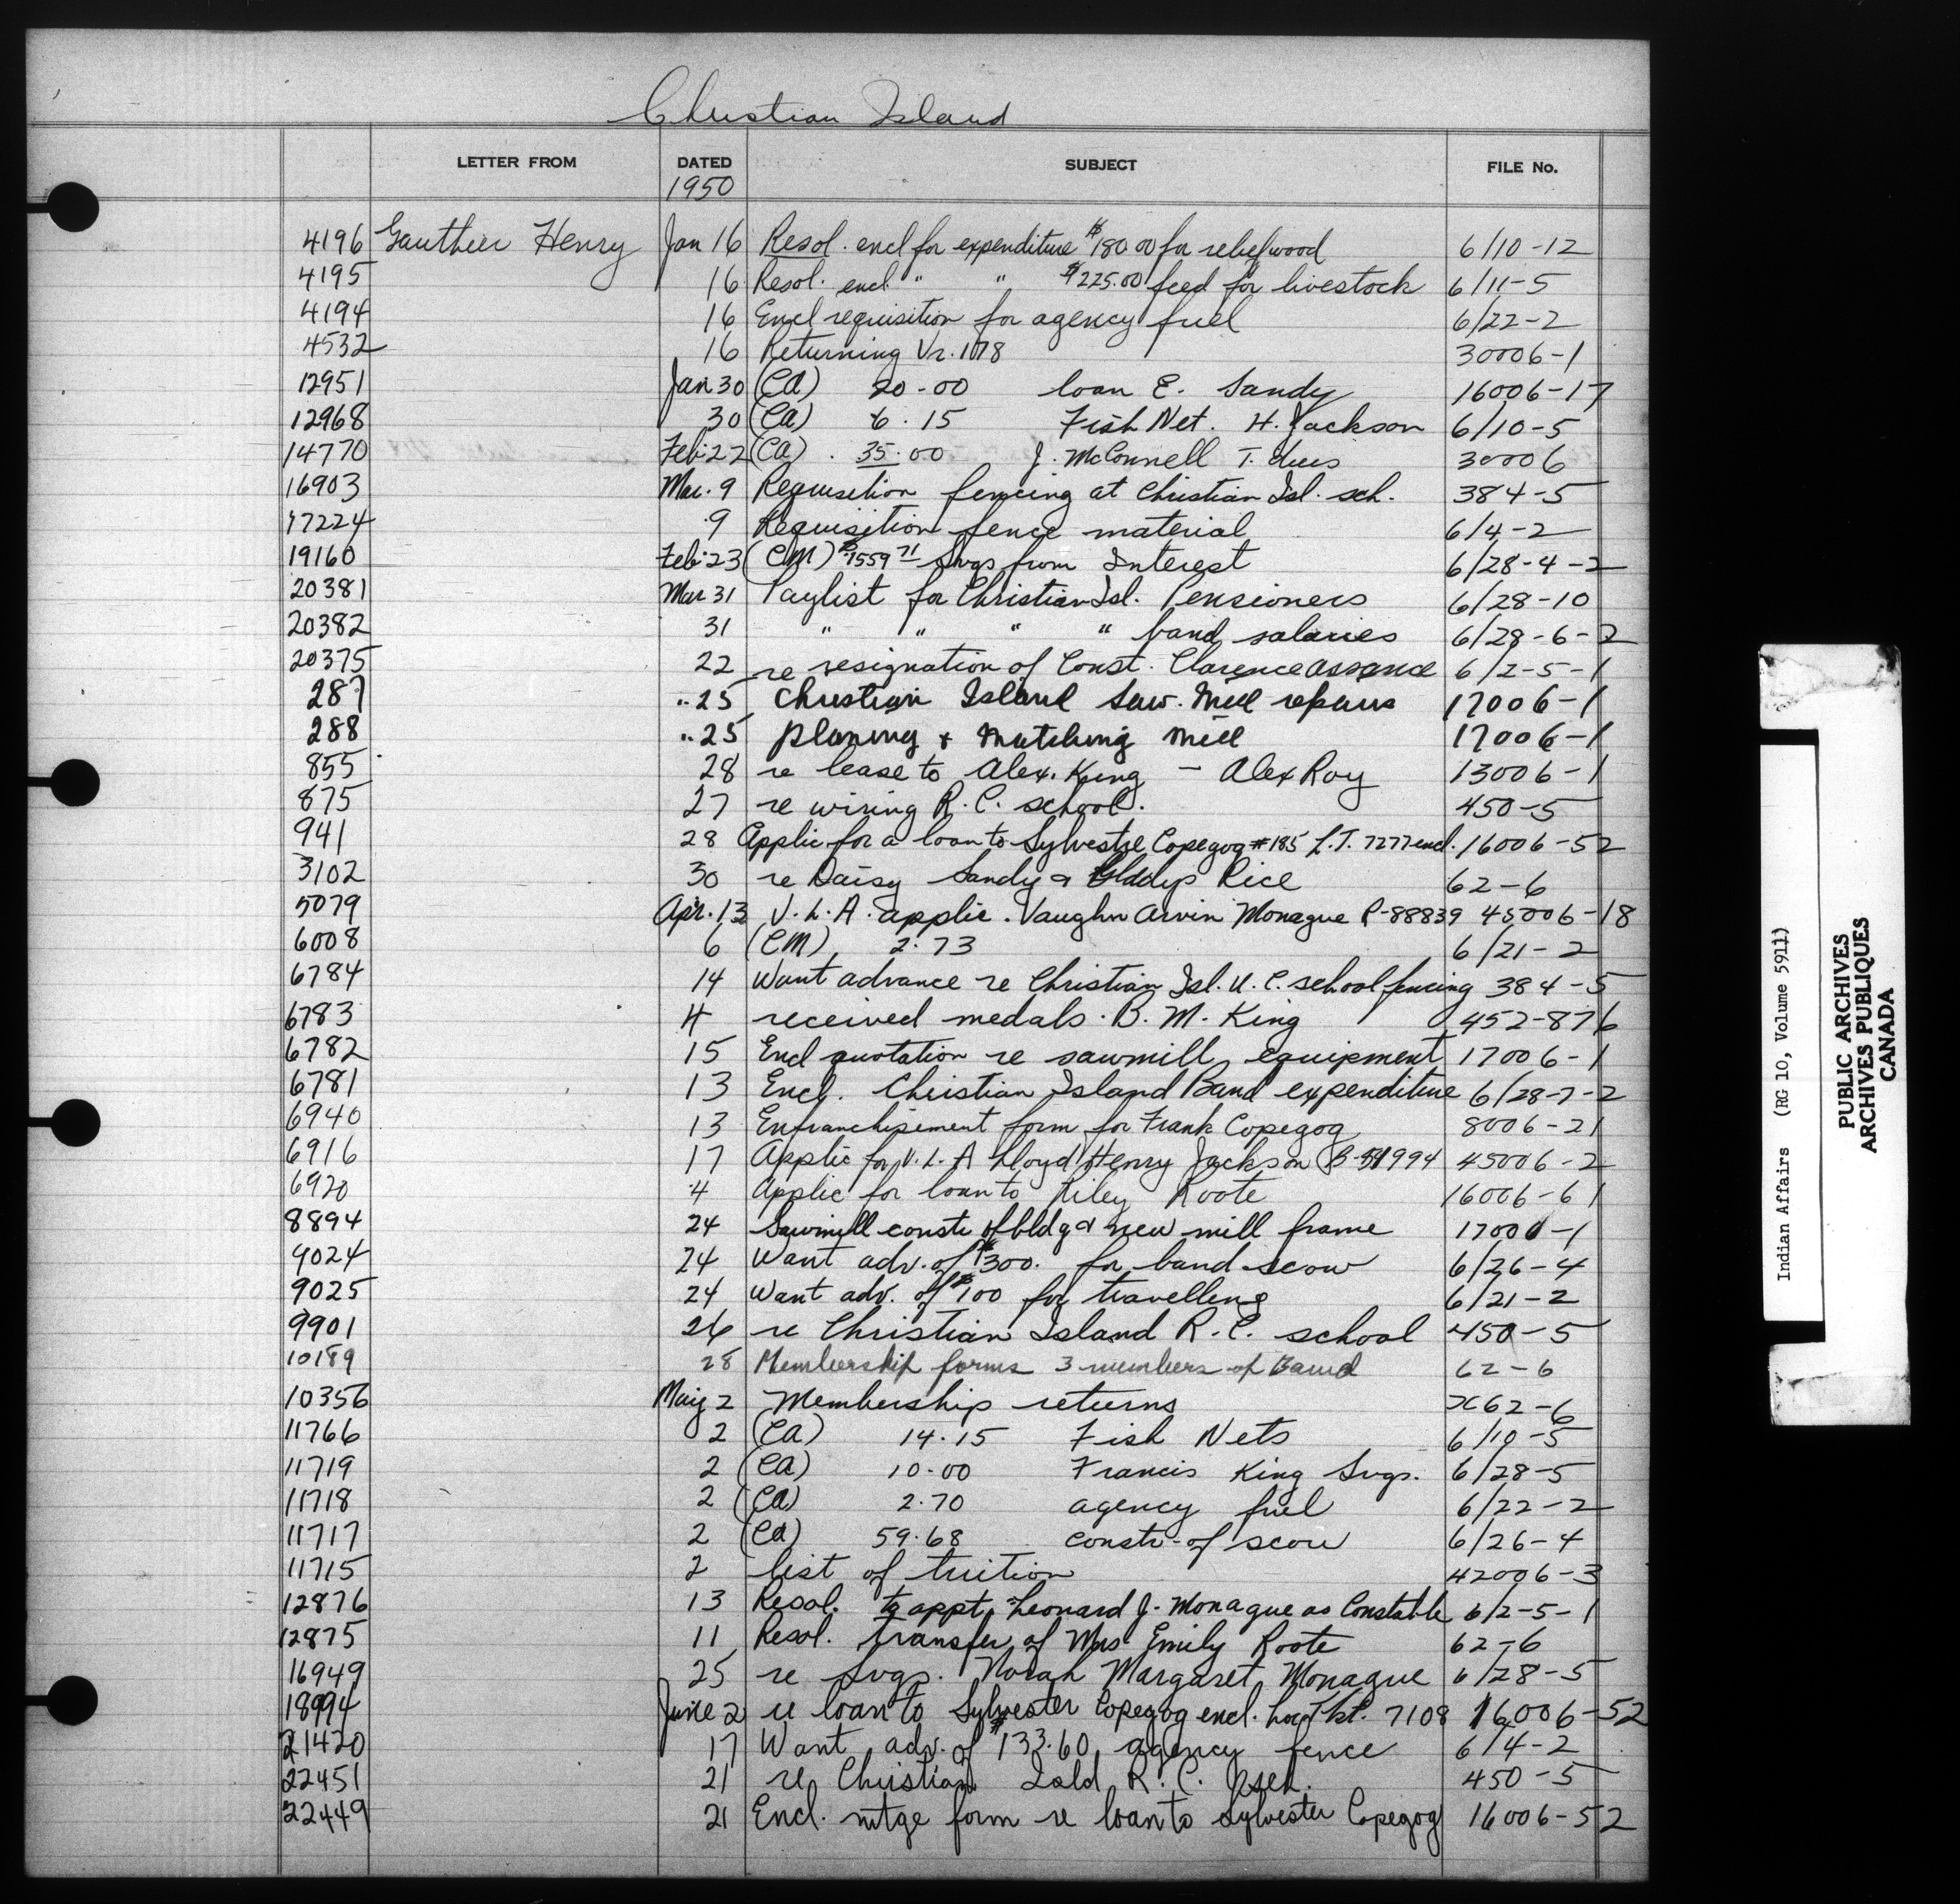 Christian Island
LETTER FROM DATED SUBJECT FILE No.
1950
4196 Gauthier Henry Jan 16 Resol. encl for expenditure $180 00 for relief wood 6/10-12
4195 16 Resol. encl. " " $225.00 feed for livestock 6/11-5
4194 16 Encl requisition for agency fuel 6/22-2
4532 16 Returning Vr. 1178 30006-1
12951 Jan 30 (CA) 20-00 loan E. Sandy 16006-17
12968 30 (CA) 6.15 Fish Net. H. Jackson 6/10-5
14770 Feb. 22 (CA) . 35.00 J. McConnell T. dues 30006
16903 Mar. 9 Requisition fencing at Christian Isl. sch. 384-5
17224 9 Requisition fence material 6/4-2
19160 Feb. 23 (CM) $1559 71 Svgs from Interest 6/28-4-2
20381 Mar 31 Paylist for Christian Isl. Pensioners 6/28-10
20382 31 " " " " band salaries 6/28-6-2
20375 22 re resignation of Const. Clarence Assance 6/2-5-1
287 " 25 Christian Island Saw. Mill repairs 17006-1
288 " 25 planing & Matching Mill 17006-1
855 28 re lease to Alex. King - Alex Roy 13006-1
875 27 re wiring R.C. school. 450-5
941 28 Applic for a loan to Sylvestre Copegog #185 L.T. 7277 encl. 16006-52
3102 30 re Daisy Sandy & Gladys Rice 62-6
5079 Apr. 13 V.L.A. applic. Vaughn Arvin Monague P-88839 45006-18
6008 6 (CM) 2.73 6/21-2
6784 14 Want advance re Christian Isl. U.C. school fencing 384-5
6783 14 received medals. B.M. King 452-876
6782 15 Encl quotation re sawmill equipment 17006-1
6781 13 Encl. Christian Island Band expenditure 6/28-7-2
6940 13 Enfranchisement form for Frank Copegog 8006-21
6916 17 Applic for V.L.A Lloyd Henry Jackson 45006-2
6920 4 Applic for loan to Riley Roote 16006-61
8894 24 Sawmill constr of bldg & new mill frame 17006-1
9024 24 Want adv. of $300. for band scow 6/26-4
9025 24 Want adv. of $100 for travelling 6/21-2
9901 26 re Christian Island R.C. school 450-5
10189 28 Membership forms 3 members of Band 62-6
10356 May 2 Membership returns x62-6
11766 2 (CA) 14.15 Fish Nets 6/10-5
11719 2 (CA) 10.00 Francis King Svgs. 6/28-5
11718 2 (CA) 2.70 agency fuel 6/22-2
11717 2 (CA) 59.68 constr. of scow 6/26-4
11715 2 list of tuition 42006-3
12876 13 Resol. to appt. Leonard J. Monague as Constable 6/2-5-1
12875 11 Resol. transfer of Mrs Emily Roote 62-6
16949 25 re Svgs. Norah Margaret Monague 6/28-5
18994 June 2 re loan to Sylvester Copegog encl. Loc Tkt. 7108 16006-52
21420 17 Want adv. of $133.60 agency fence 6/4-2
22451 21 re Christian Isld R.C. sch. 450-5
22449 21 Encl. mtge form re loan to Sylvester Copegog 16006-52
Indian Affairs (RG 10, Volume 5911)
PUBLIC ARCHIVES
ARCHIVES PUBLIQUES
CANADA